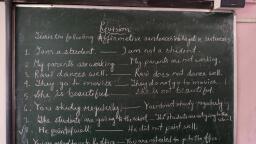 Revision
Trans the following Affirmative sentences into Negative sentences
1. I am a student. — I am not a student.
2. My parents are working — My parents are not working.
3. Ravi dances well. — Ravi does not dances well.
4. They go to movie — They do not go to movie
5. She is beautiful — She is not beautiful.
6. You study regularly — You do not study regularly
7. The students are going to the — The students are not going to the
8. He painted well — He did not paint well.